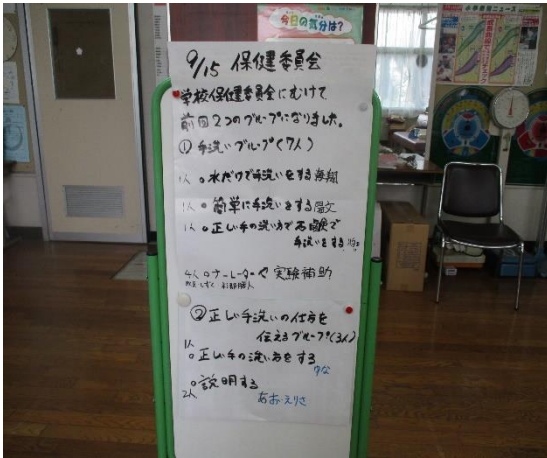 今日の気分は?
9/15 保健委員会
学校保健委員会にむけて
前回2つのグループになりました。
① 手洗いグループ(7人)
1人 ○水だけで手洗いをする
1人 ○簡単に手洗いをする
1人 ○正しい手の洗い方で石験で
手洗いをする
4人 ○ナーレーターや実験補助
② 正しい手洗いの仕方を
伝えるグループ(3人)
1人
○正しい手の洗い方をする
ゆな
○説明する
2人
あお・えりさ